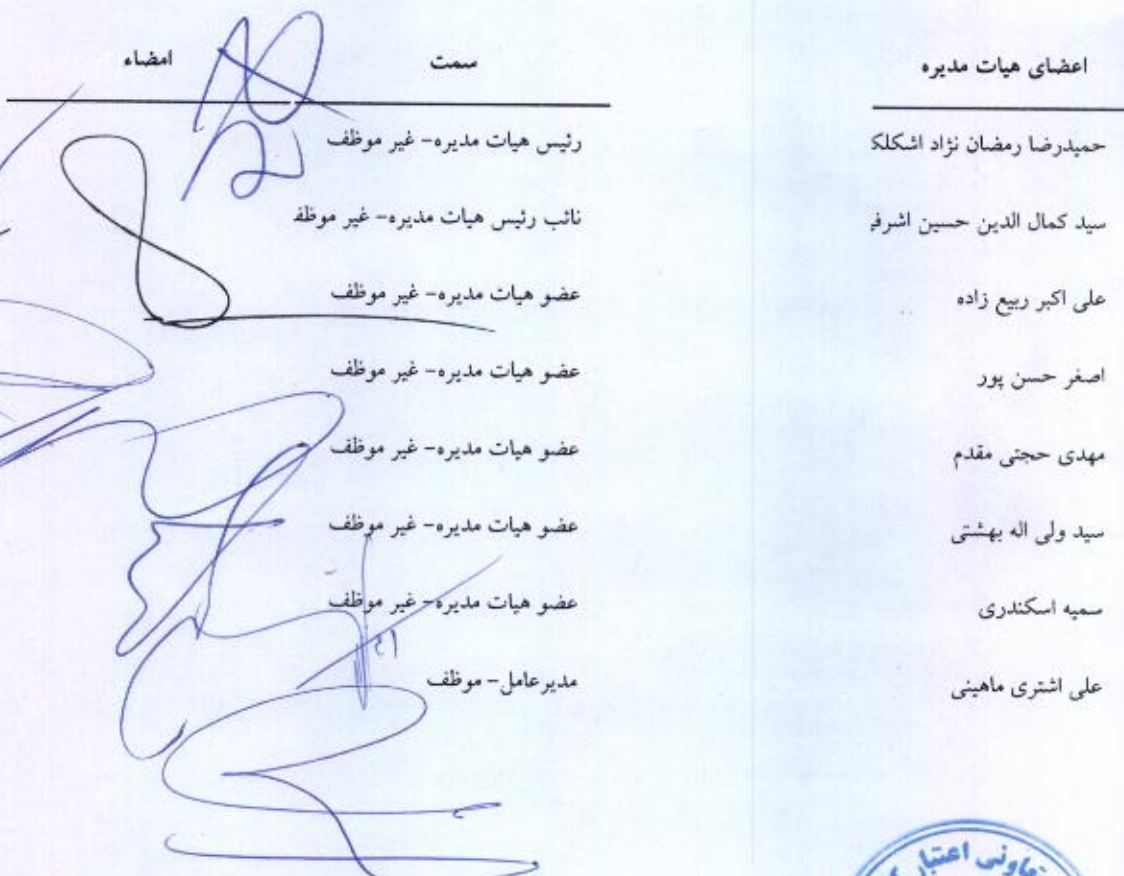 اعضای هیات مدیره سمت امضاء
حمیدرضا رمضان نژاد اشکلک رئیس هیات مدیره- غیر موظف
سید کمال الدین حسین اشرفی نائب رئیس هیات مدیره- غیر موظف
علی اکبر ربیع زاده عضو هیات مدیره- غیر موظف
اصغر حسن پور عضو هیات مدیره- غیر موظف
مهدی حجتی مقدم عضو هیات مدیره- غیر موظف
سید ولی اله بهشتی عضو هیات مدیره- غیر موظف
سمیه اسکندری عضو هیات مدیره- غیر موظف
علی اشتری ماهینی مدیرعامل- موظف
تعاونی اعتبار